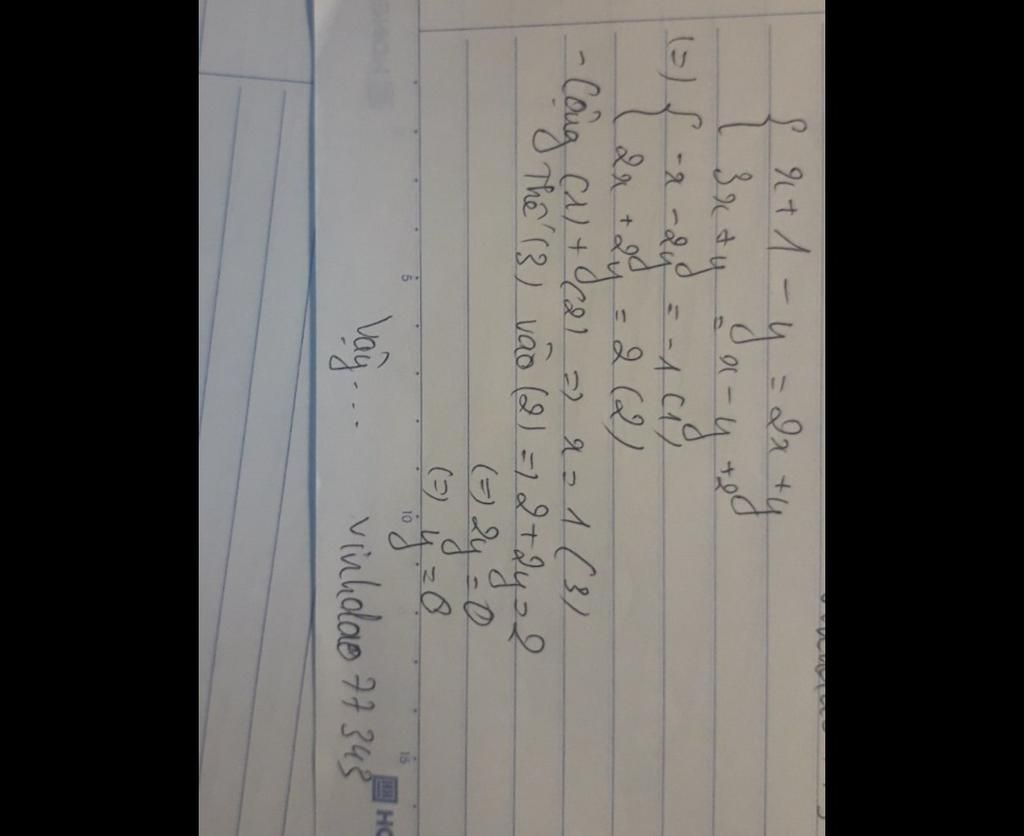 { x + 1 - y = 2x + y
{ 3x + y = x - y + 2
(=) { -x - 2y = -1 (1)
{ 2x + 2y = 2 (2)
- Cộng (1) + (2) => x = 1 (3)
Thế (3) vào (2) => 2 + 2y = 2
(=) 2y = 0
(=) y = 0
Vậy... vinhdao 77343
5 10 15
HO